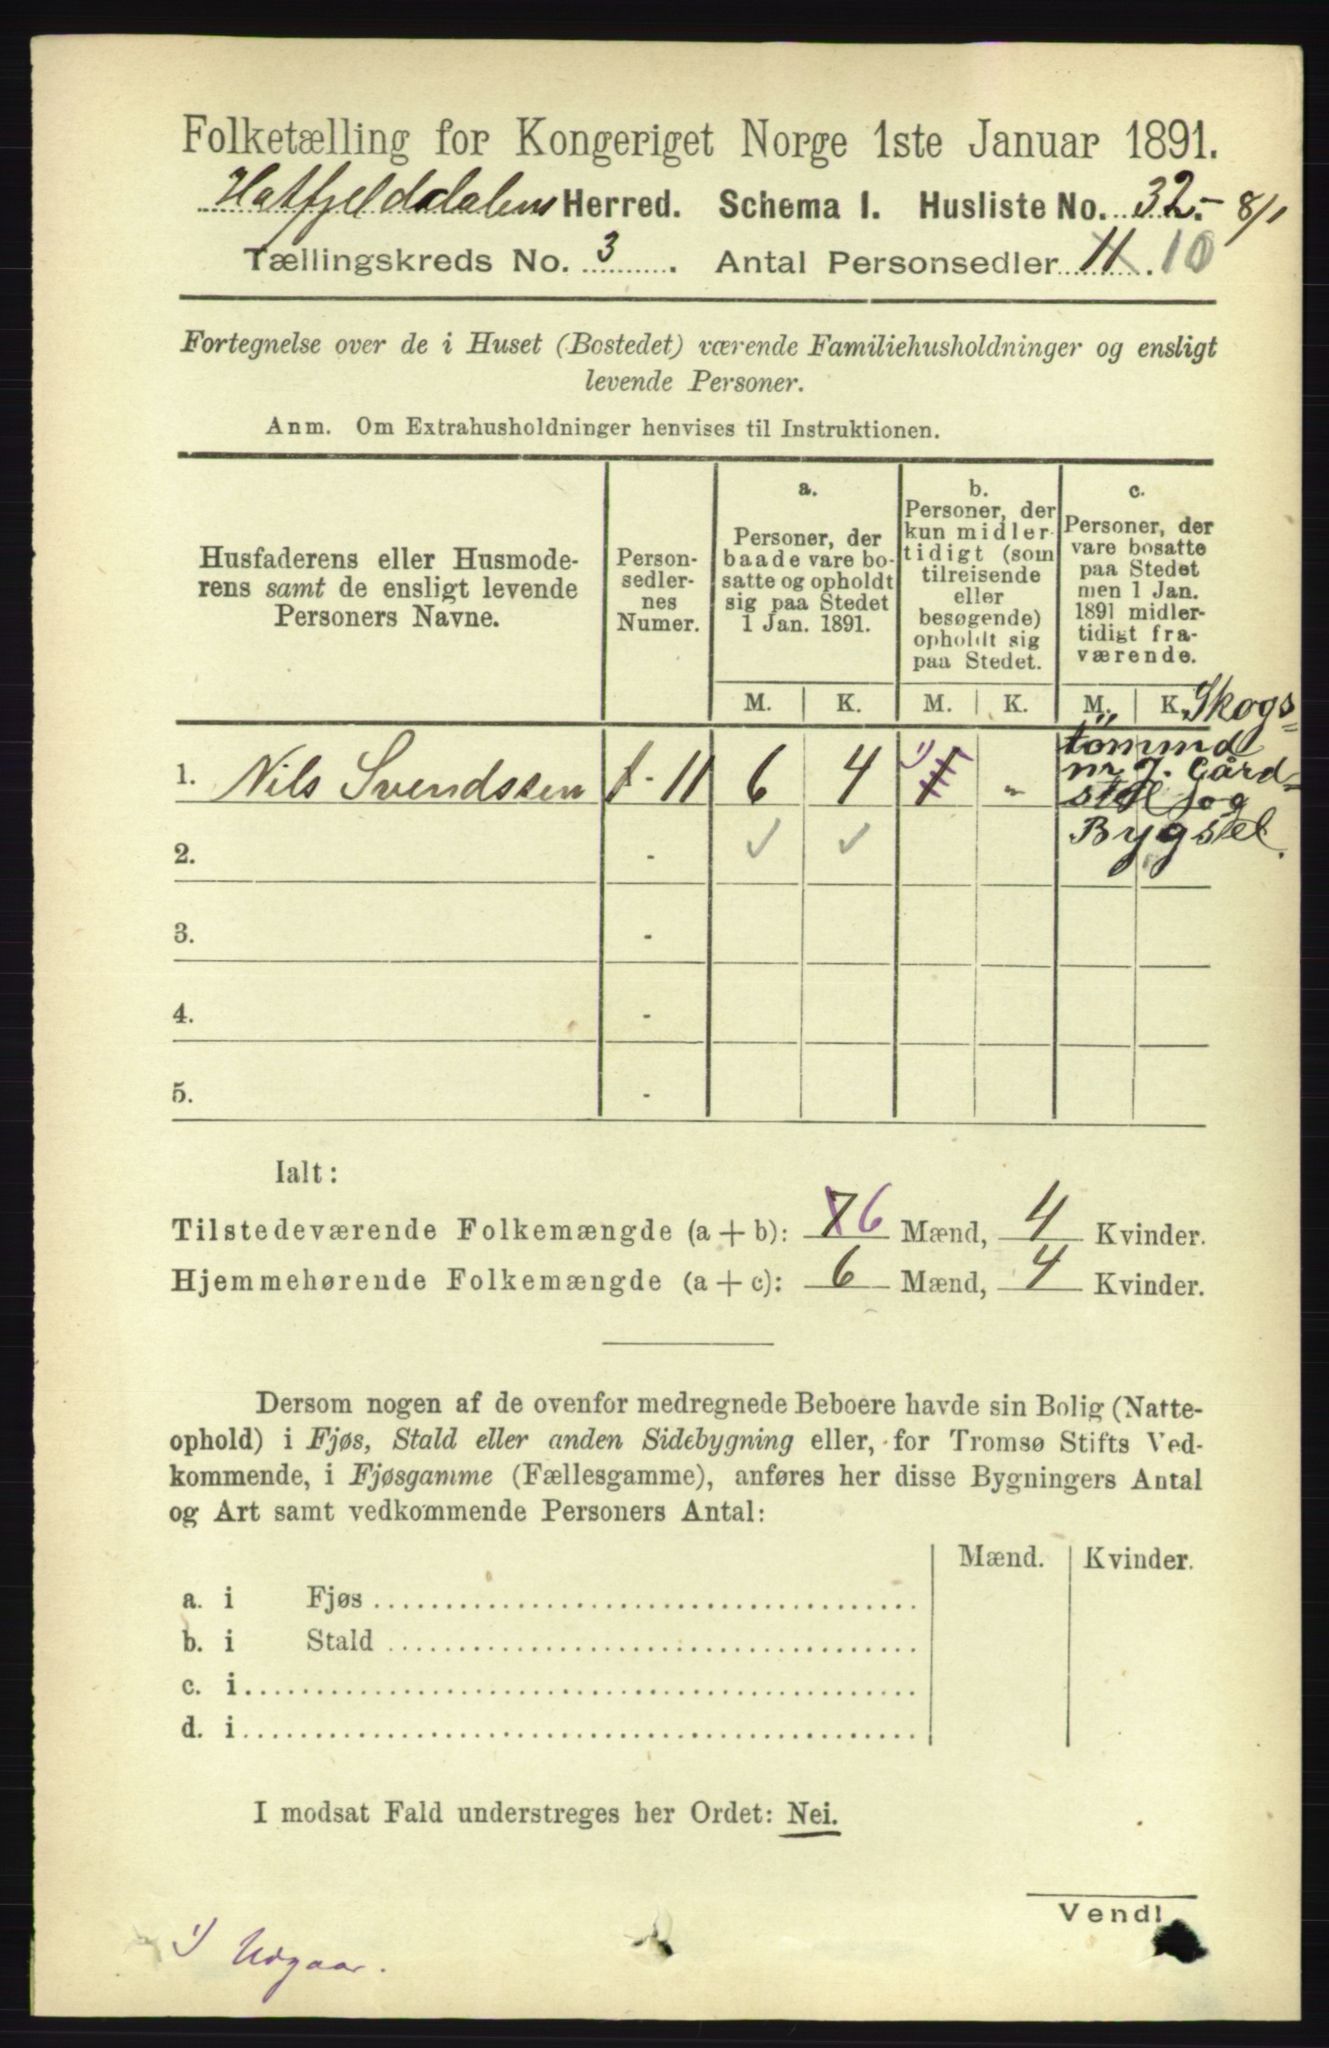 Folketælling for Kongeriget Norge 1ste Januar 1891.
Hatfjelddalens Herred. Schema I. Husliste No. 32.- 8/1
Tællingskreds No. 3. Antal Personsedler 11. 10
Fortegnelse over de i Huset (Bostedet) værende Familiehusholdninger og ensligt
levende Personer.
Anm. Om Extrahusholdninger henvises til Instruktionen.
Husfaderens eller Husmode-
rens samt de ensligt levende
Personers Navne.
Person-
sedler-
nes
Numer.
a.
Personer, der
baade vare bo-
satte og opholdt
sig paa Stedet
1 Jan. 1891.
b.
Personer, der
kun midler-
tidigt (som
tilreisende
eller
besøgende)
opholdt sig
paa Stedet.
c.
Personer, der
vare bosatte
paa Stedet
men 1 Jan.
1891 midler-
tidigt fra-
værende.
M. K. M. K. M. K.
Skogs=
1. Nils Svendssen 1 - 11 6 4 1) 1 "
nr 7. Gård=
og
Bygsel.
2. - ✓ ✓
3. -
4. -
5. -
Ialt:
Tilstedeværende Folkemængde (a + b): 7 6 Mænd, 4 Kvinder.
Hjemmehørende Folkemængde (a + c): 6 Mænd, 4 Kvinder.
Dersom nogen af de ovenfor medregnede Beboere havde sin Bolig (Natte-
ophold) i Fjøs, Stald eller anden Sidebygning eller, for Tromsø Stifts Ved-
kommende, i Fjøsgamme (Fællesgamme), anføres her disse Bygningers Antal
og Art samt vedkommende Personers Antal:
Mænd. Kvinder.
a. i Fjøs
b. i Stald
c. i
d. i
I modsat Fald understreges her Ordet: Nei.
Vend!
1) Udgaar.